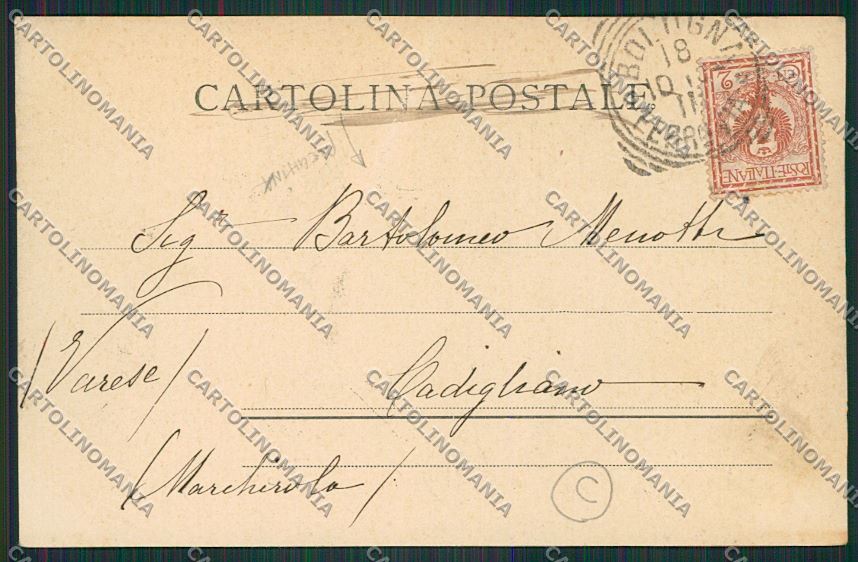 CARTOLINA POSTALE
BOLOGNA
18
FERROVIA
CEN. 2
POSTE-ITALIANE
Sigr Bartolomeo Menotti
(Varese)
Cadigliano
(Marchirolo)
C
CARTOLINOMANIA